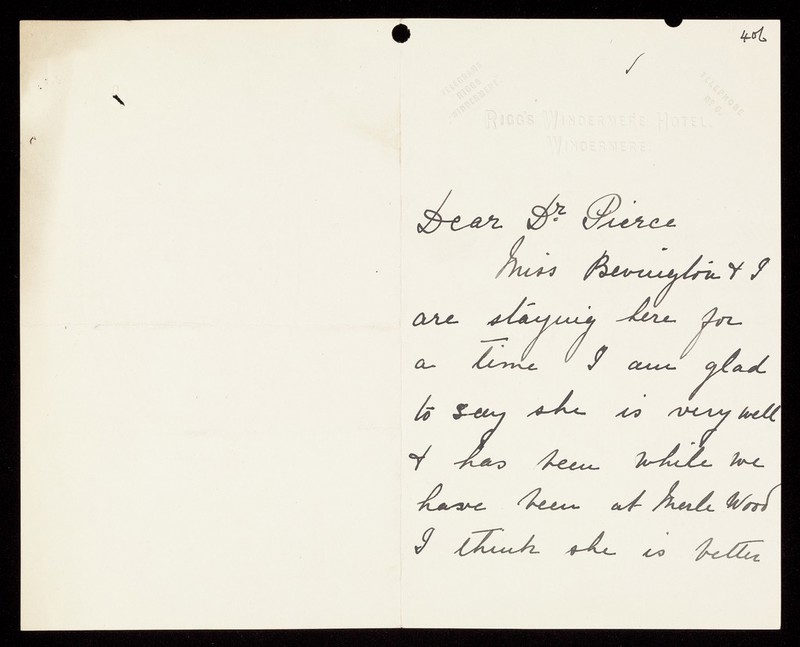 406
TELEGRAMS
RIGG'S
WINDERMERE
TELEPHONE
RIGG'S WINDERMERE HOTEL,
WINDERMERE.
Dear Dr. Pierce
Miss Bevington & I
are staying here for
a time I am glad
to say she is very well
& has been while we
have been at Merle Wood
I think she is better